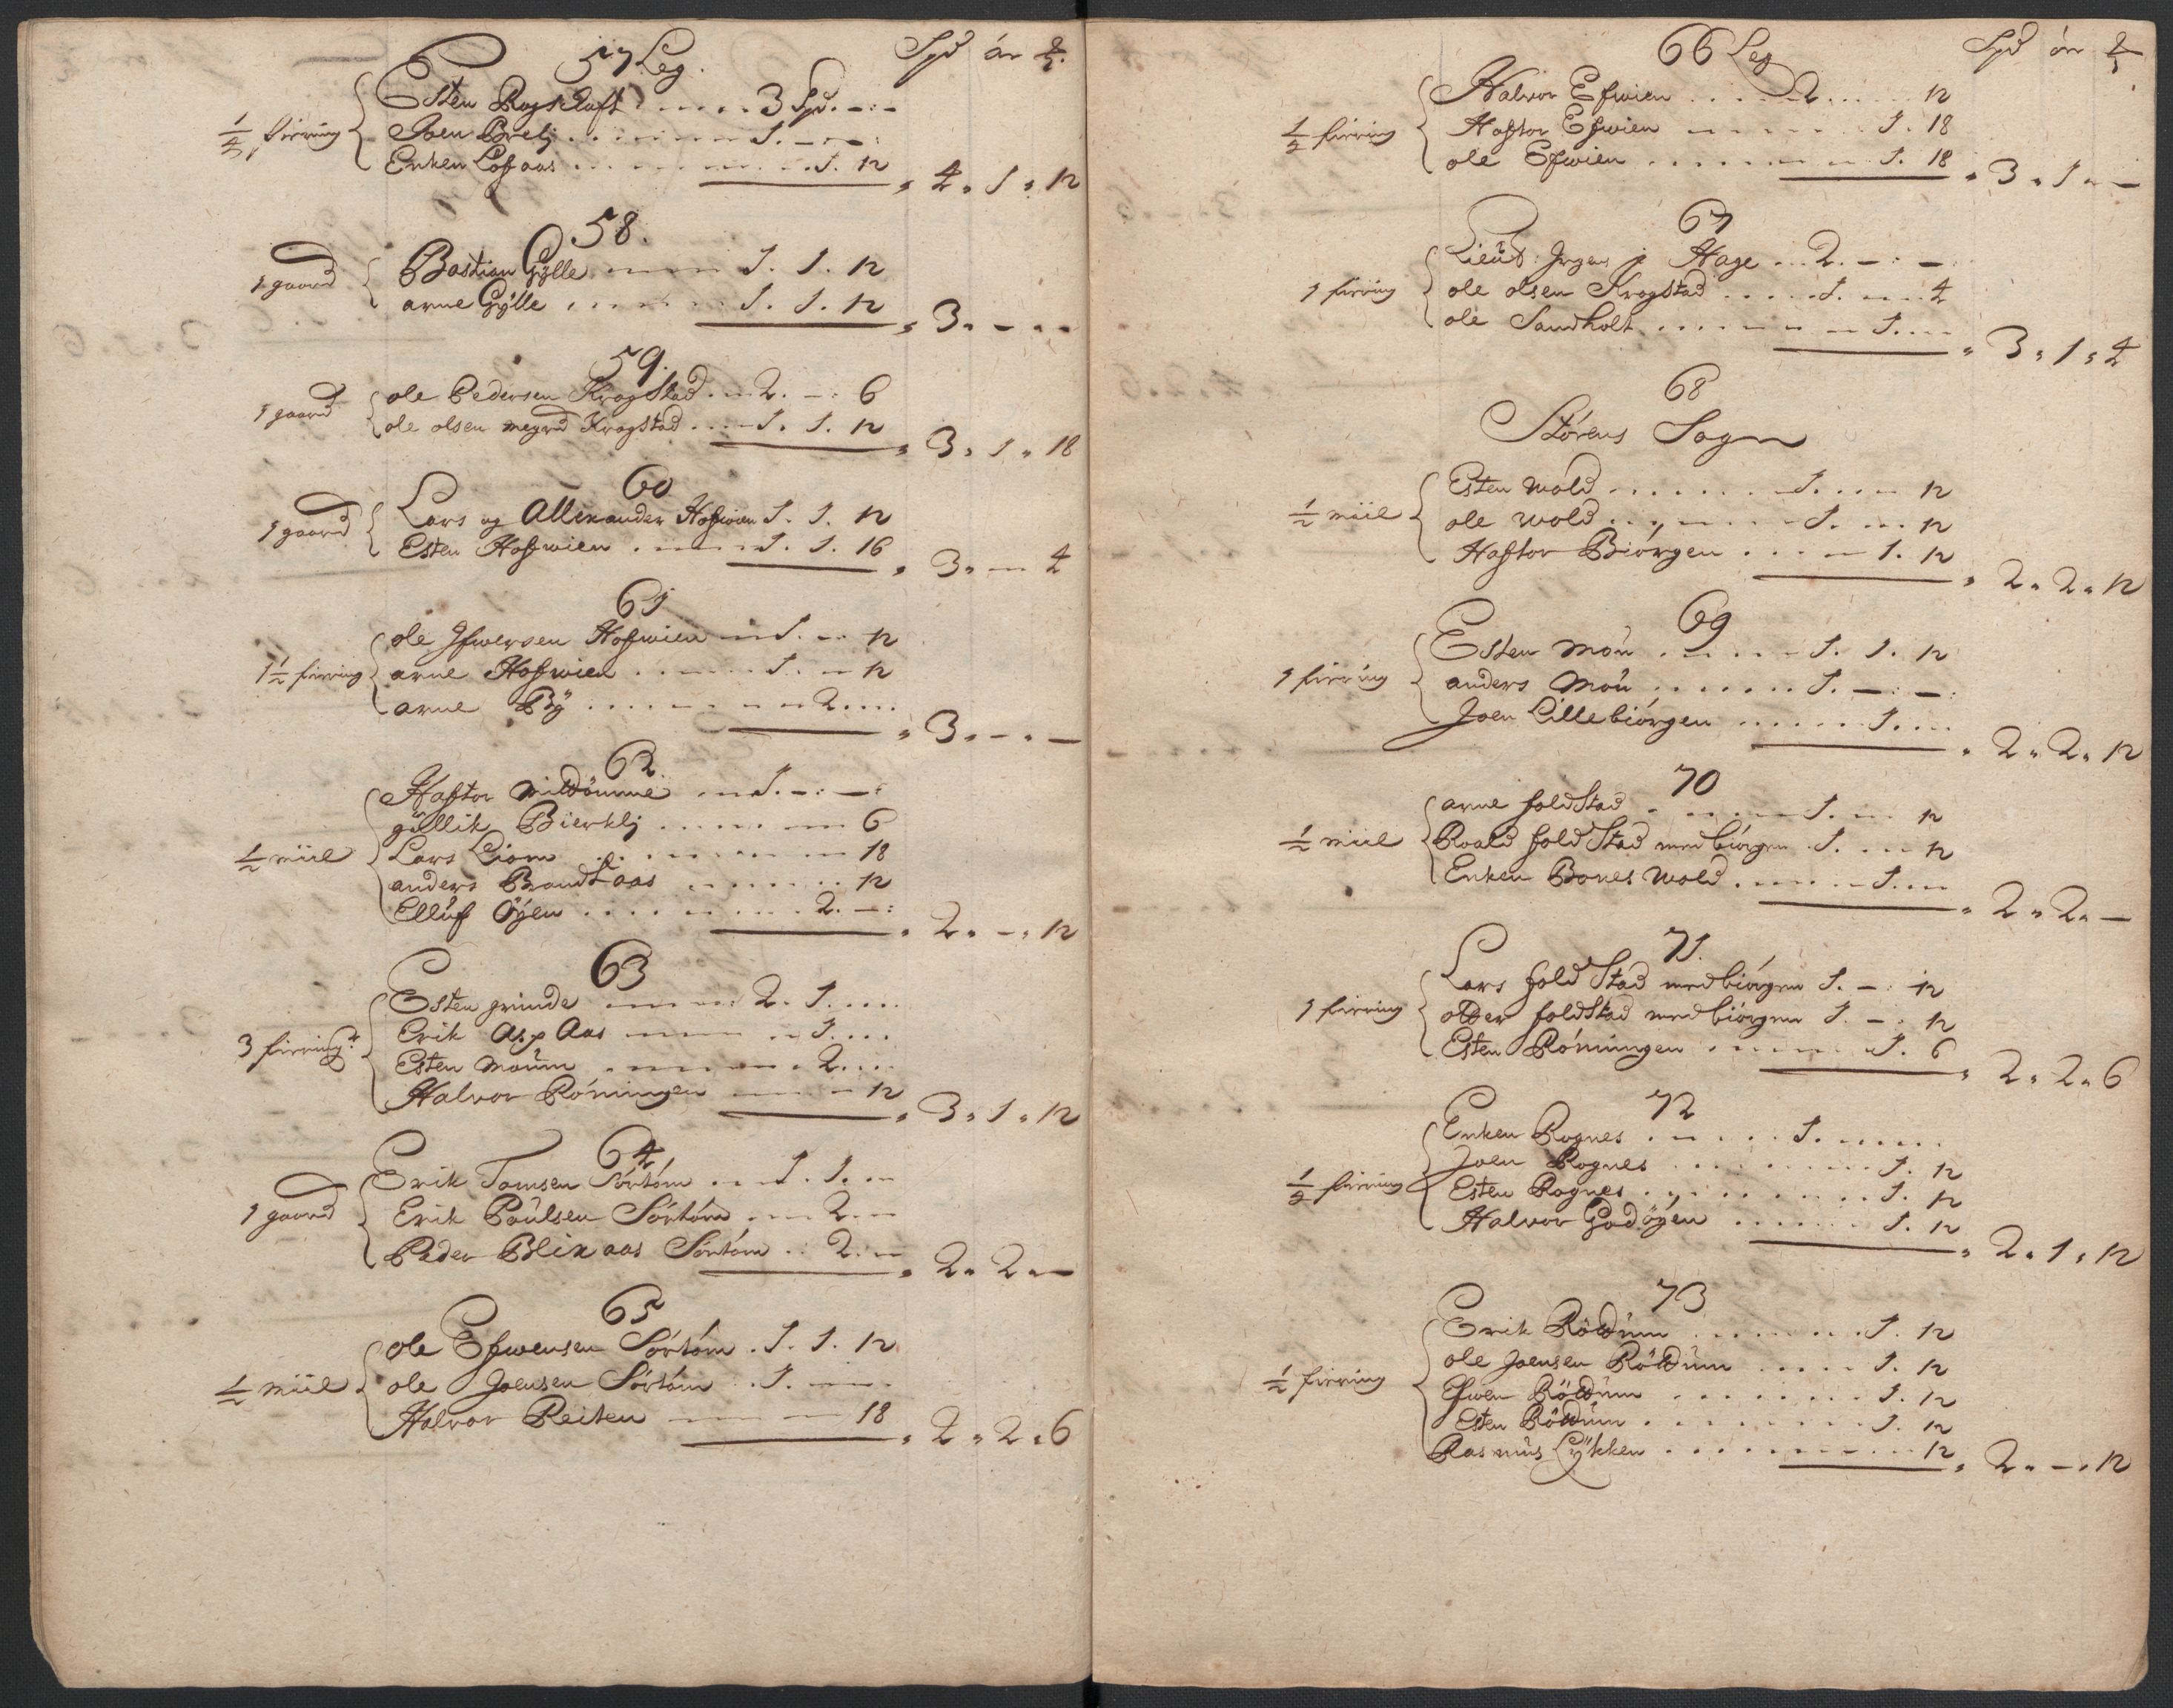 57 Leg. Spd ör
Esten Rogstluft . . . . 3 Spd. - : -
1/4 fierring Joen Brelj . . . . . 1. - -
Enken Losaas . . . . . 1. 12 " 4 " 1 " 12
58.
1 gaard Bastian Gylle . . . 1. 1. 12
arne Gylle . . . . . 1. 1. 12 " 3 " - " -
59.
1 gaard ole Pedersen Krogstad . . 2. - : 6
ole olsen Krogstad . . . 1. 1. 12 " 3 " 1 " 18
60
1 gaard Lars og Allexander Hofwien 1. 1. 12
Esten Hofwien . . . 1. 1. 16 " 3 " - 4
61
ole Ifwersen Hofwien - 1. - 12
1 1/2 fierring arne Hofwien . . . . 1. - 12
arne By . . . . . . 2. . . . " 3 " - " -
62.
Haftor . . . 1. - : - :
gullik Bierklj . . . . . 6
1/2 miil Lars Liom . . . . . . 18
anders Brandtaas . . . . . 12
Elluf Öyen . . . . . 2. - : " 2 " - " 12
63
Esten grinde . . . 2. 1. . . .
3 fierringr Erik Asp Aas . . . 1. . . .
Esten Moum . . . . 2. . . .
Halvor Röningen . . . 12 " 3 " 1 " 12
64
Erik Tomsen Sörtöm . . 1. 1. . .
1 gaard Erik Paulsen Sörtöm . . . 2. . .
Peder Blixaas Sörtöm . . 2. . . " 2 " 2 " -
65
ole Efwensen Sörtöm . 1. 1. 12
1/2 miil ole Joensen Sörtöm . 1. . . .
Halvor Reiten . . . 18 " 2 " 2 " 6
66 Leg Spd ör
Halvor Efwien . . . 2 . . . . 12
1/2 fierring Haftor Efwien . . . . . 1. 18
ole Efwien . . . . . 1. 18 " 3 " 1 " -
67
Lieut: Jrgens Hage . . 2. - : - :
1 fierring ole olsen Krogstad . . . . 1. . . . 4
ole Sandholt . . . . . 1. . . . " 3 " 1 " 4
68
Störens Sogn
Esten Wold . . . . . . 1. . . . 12
1/2 miil ole Wold . . . . . . 1. . . . 12
Haftor Biörgen . . . . 1. 12 " 2 " 2 " 12
69
Esten Mou . . . . . 1. 1. 12
1 fierring anders Mou . . . . . . 1. - : - :
Joen Lillebiörgen . . . . . 1. . . . " 2 " 2 " 12
70
arne foldstad . . . . . 1. . . 12
1/2 miil Roald foldstad med biörgen . 1. . . . 12
Enken Bones Wold . . . . 1. . . . " 2 " 2 " -
71.
Lars foldstad med biörgen 1. - : 12
1 fierring foldstad med biörgen 1. - . 12
Esten Röningen . . . . . 1. 6 " 2 " 2 " 6
72
Enken Rognes . . . . . 1. . . . . .
Joen Rognes . . . . . . . 1. 12
1/2 fierring Esten Rognes . . . . . . . 1. 12
Halvor Godöyen . . . . . 1. 12 " 2 " 1 " 12
73
Erik Röddum . . . . . . 1. 12
ole Joensen Röddum . . . . 1. 12
1/2 fierring Efwen Röddum . . . . . . . 1. 12
Esten Röddum . . . . . . . . 1. 12
Rasmus Lykken . . . . . . . . . 12 " 2 " - " 12